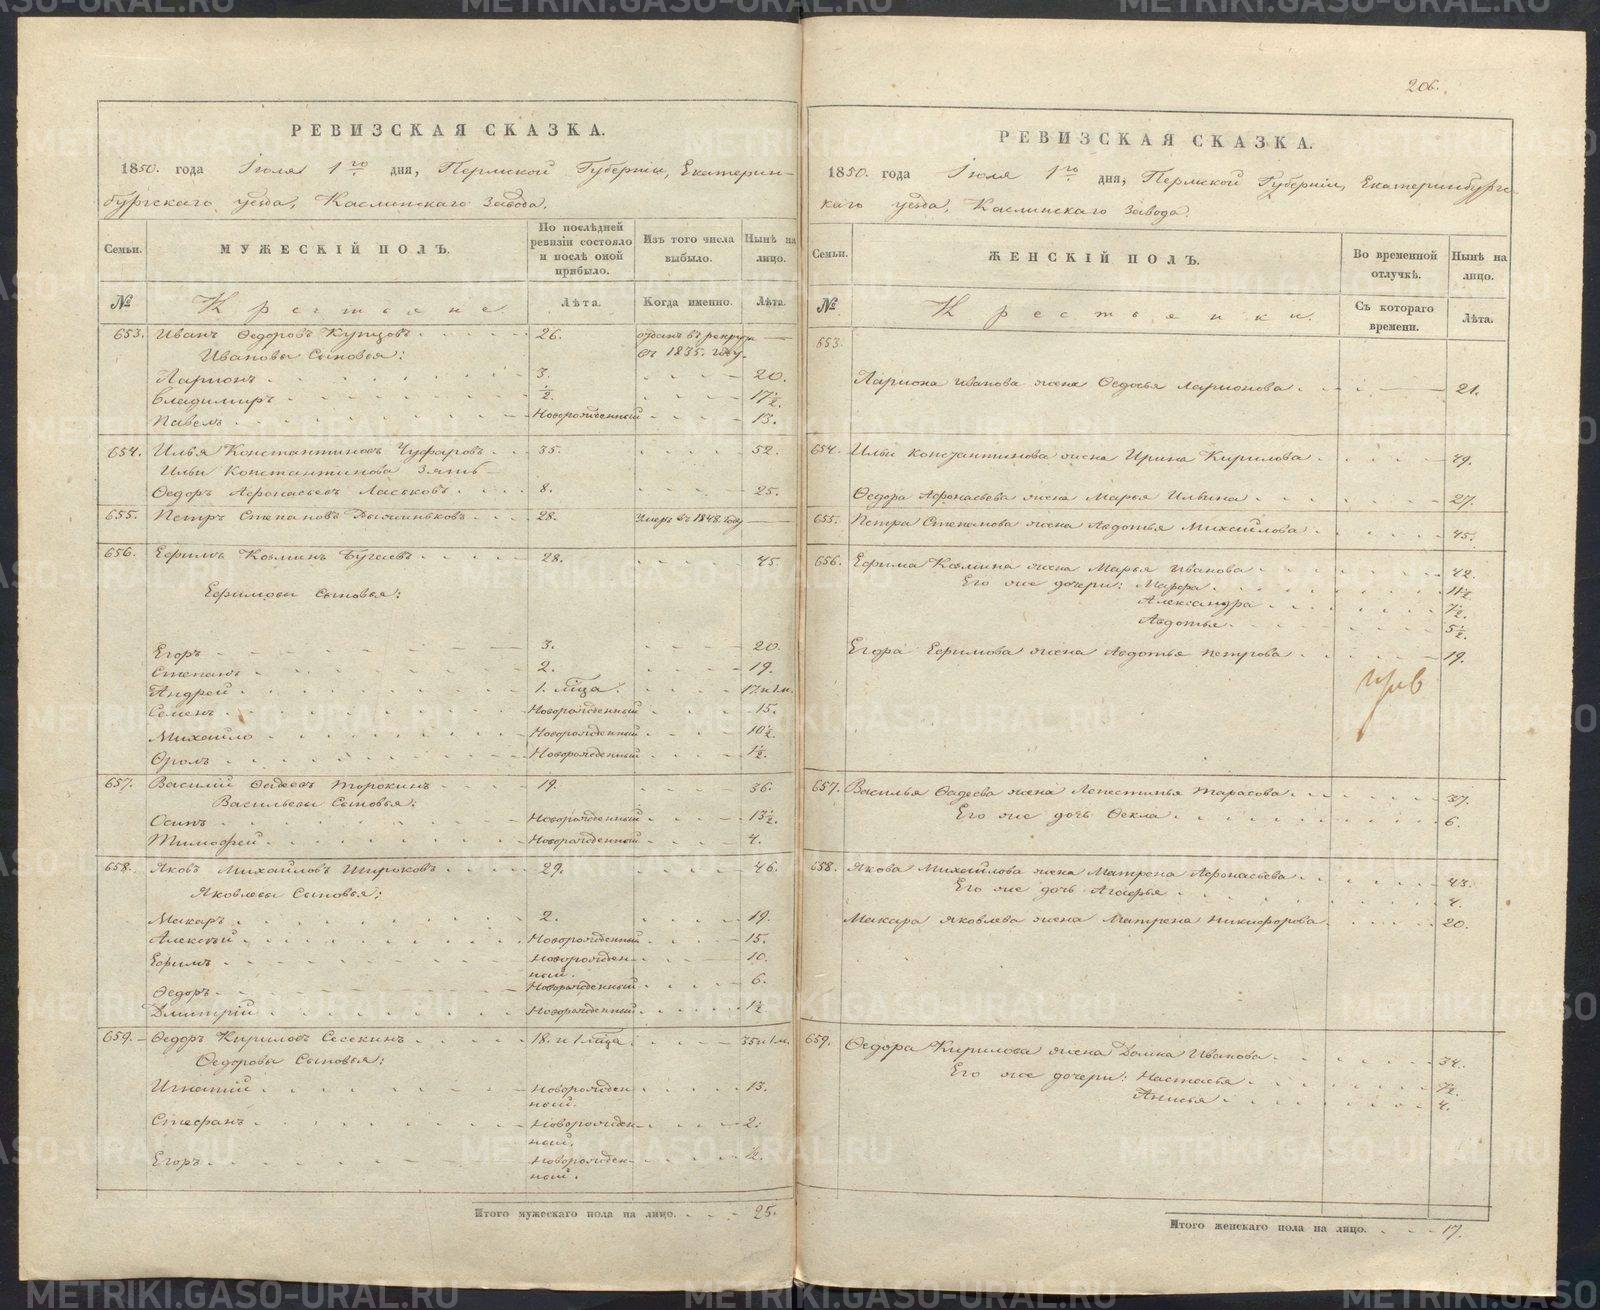 206.
РЕВИЗСКАЯ СКАЗКА.
1850. года Іюля 1го дня, Пермской Губерніи, Екатерин-
бургскаго уезда, Каслинскаго Завода.
Семьи.
МУЖЕСКІЙ ПОЛЪ.
По послѣдней ревизіи состояло и послѣ оной прибыло.
Изъ того числа выбыло.
Нынѣ на лицо.
№
Крестьяне
Лѣта.
Когда именно.
Лѣта.
653. Иванъ Ѳедоровъ Купцовъ 26. отданъ въ рекруты
въ 1835. году.
Ивановы Сыновья:
Ларионъ 3. 20.
Владимиръ ½. 17½.
Павелъ Новорожденный 13.
654. Илья Константиновъ Чуфаровъ 35. 52.
Ильи Константинова Зять
Ѳедоръ Афонасьевъ Ласьковъ 8. 25.
655. Петръ Степановъ 28. Умеръ въ 1848. году
656. Ефимъ Козминъ Бугаевъ 28. 45.
Ефимовы Сыновья:
Егоръ 3. 20.
Степанъ 2. 19.
Андрей 1. мца. 17. и 1 м.
Семенъ Новорожденный 15.
Михайло Новорожденный 10½.
Фролъ Новорожденный 1½.
657. Василий Фадеевъ Торокинъ 19. 36.
Васильевы Сыновья:
Осипъ Новорожденный 13½.
Тимофей Новорожденный 4.
658. Яковъ Михайловъ Широковъ 29. 46.
Яковлевы Сыновья:
Макаръ 2. 19.
Алексей Новорожденный 15.
Ефимъ Новорожден- 10.
ный.
Ѳедоръ Новорожденный 6.
Дмитрій Новорожденный 1½.
659. Ѳедоръ Кириловъ Сесекинъ 18. и 1 мца 35 и 1 м.
Ѳедоровы Сыновья:
Игнатий Новорожден- 13.
ный.
Стефанъ Новорожден- 2.
ный.
Егоръ Новорожден- ½.
ный.
Итого мужескаго пола на лицо. 25.
РЕВИЗСКАЯ СКАЗКА.
1850. года Іюля 1го дня, Пермской Губерніи, Екатеринбургс-
каго уезда, Каслинскаго Завода.
Семьи.
ЖЕНСКІЙ ПОЛЪ.
Во временной отлучкѣ.
Нынѣ на лицо.
№
Крестьянки.
Съ котораго времени.
Лѣта.
653.
Лариона Иванова жена Федосья Ларионова 21.
654. Ильи Константинова жена Ирина Кирилова 49.
Ѳедора Афонасьева жена Марья Ильина 27.
655. Петра Степанова жена Авдотья Михайлова 45.
656. Ефима Козмина жена Марья Иванова 42.
Его же дочери: Марфа 11½
Александра 7½.
Авдотья 5½.
Егора Ефимова жена Авдотья Петрова 19.
657. Василья Фадеева жена Лепестинья Тарасова 37.
Его же дочь Фекла 6.
658. Якова Михайлова жена Матрена Афонасьева 43.
Его же дочь Агафья 4.
Макара Яковлева жена Матрена Никифорова 20.
659. Ѳедора Кирилова жена Домна Иванова 34.
Его же дочери: Настасья 7½.
Анисья 4.
Итого женскаго пола на лицо. 17.
METRIKI.GASO-URAL.RU